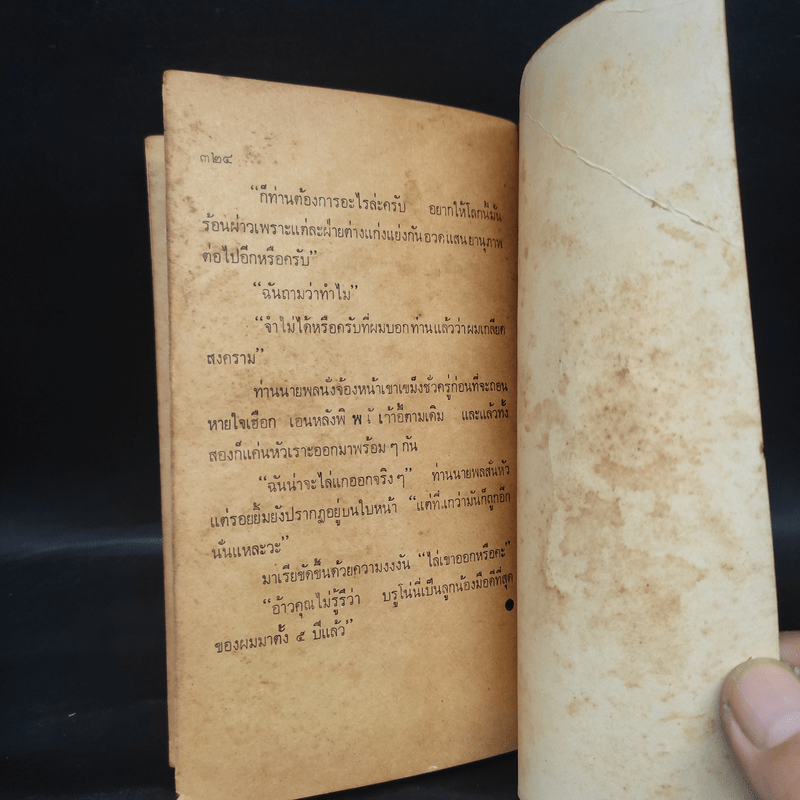 ๓๒๔
“ก็ท่านต้องการอะไรล่ะครับ อยากให้โลกนี้มัน
ร้อนผ่าวเพราะแต่ละฝ่ายต่างแก่งแย่งกันอวดแสนยานุภาพ
ต่อไปอีกหรือครับ”
“ฉันถามว่าทำไม”
“จำไม่ได้หรือครับที่ผมบอกท่านแล้วว่าผมเกลียด
สงคราม”
ท่านนายพลนั่งจ้องหน้าเขาเขม็งชั่วครู่ก่อนที่จะถอน
หายใจเฮือก เอนหลังพิ เก้าอี้ตามเดิม และแล้วทั้ง
สองก็แค่นหัวเราะออกมาพร้อม ๆ กัน
“ฉันน่าจะไล่แกออกจริง ๆ” ท่านนายพลสั่นหัว
แต่รอยยิ้มยังปรากฏอยู่บนใบหน้า “แต่ที่แกว่ามันก็ถูกอีก
นั่นแหละวะ”
มาเรียขัดขึ้นด้วยความงงงัน “ไล่เขาออกหรือคะ”
“อ้าวคุณไม่รู้รึว่า บรูโน่นี่เป็นลูกน้องมือดีที่สุด
ของผมมาตั้ง ๕ ปีแล้ว”